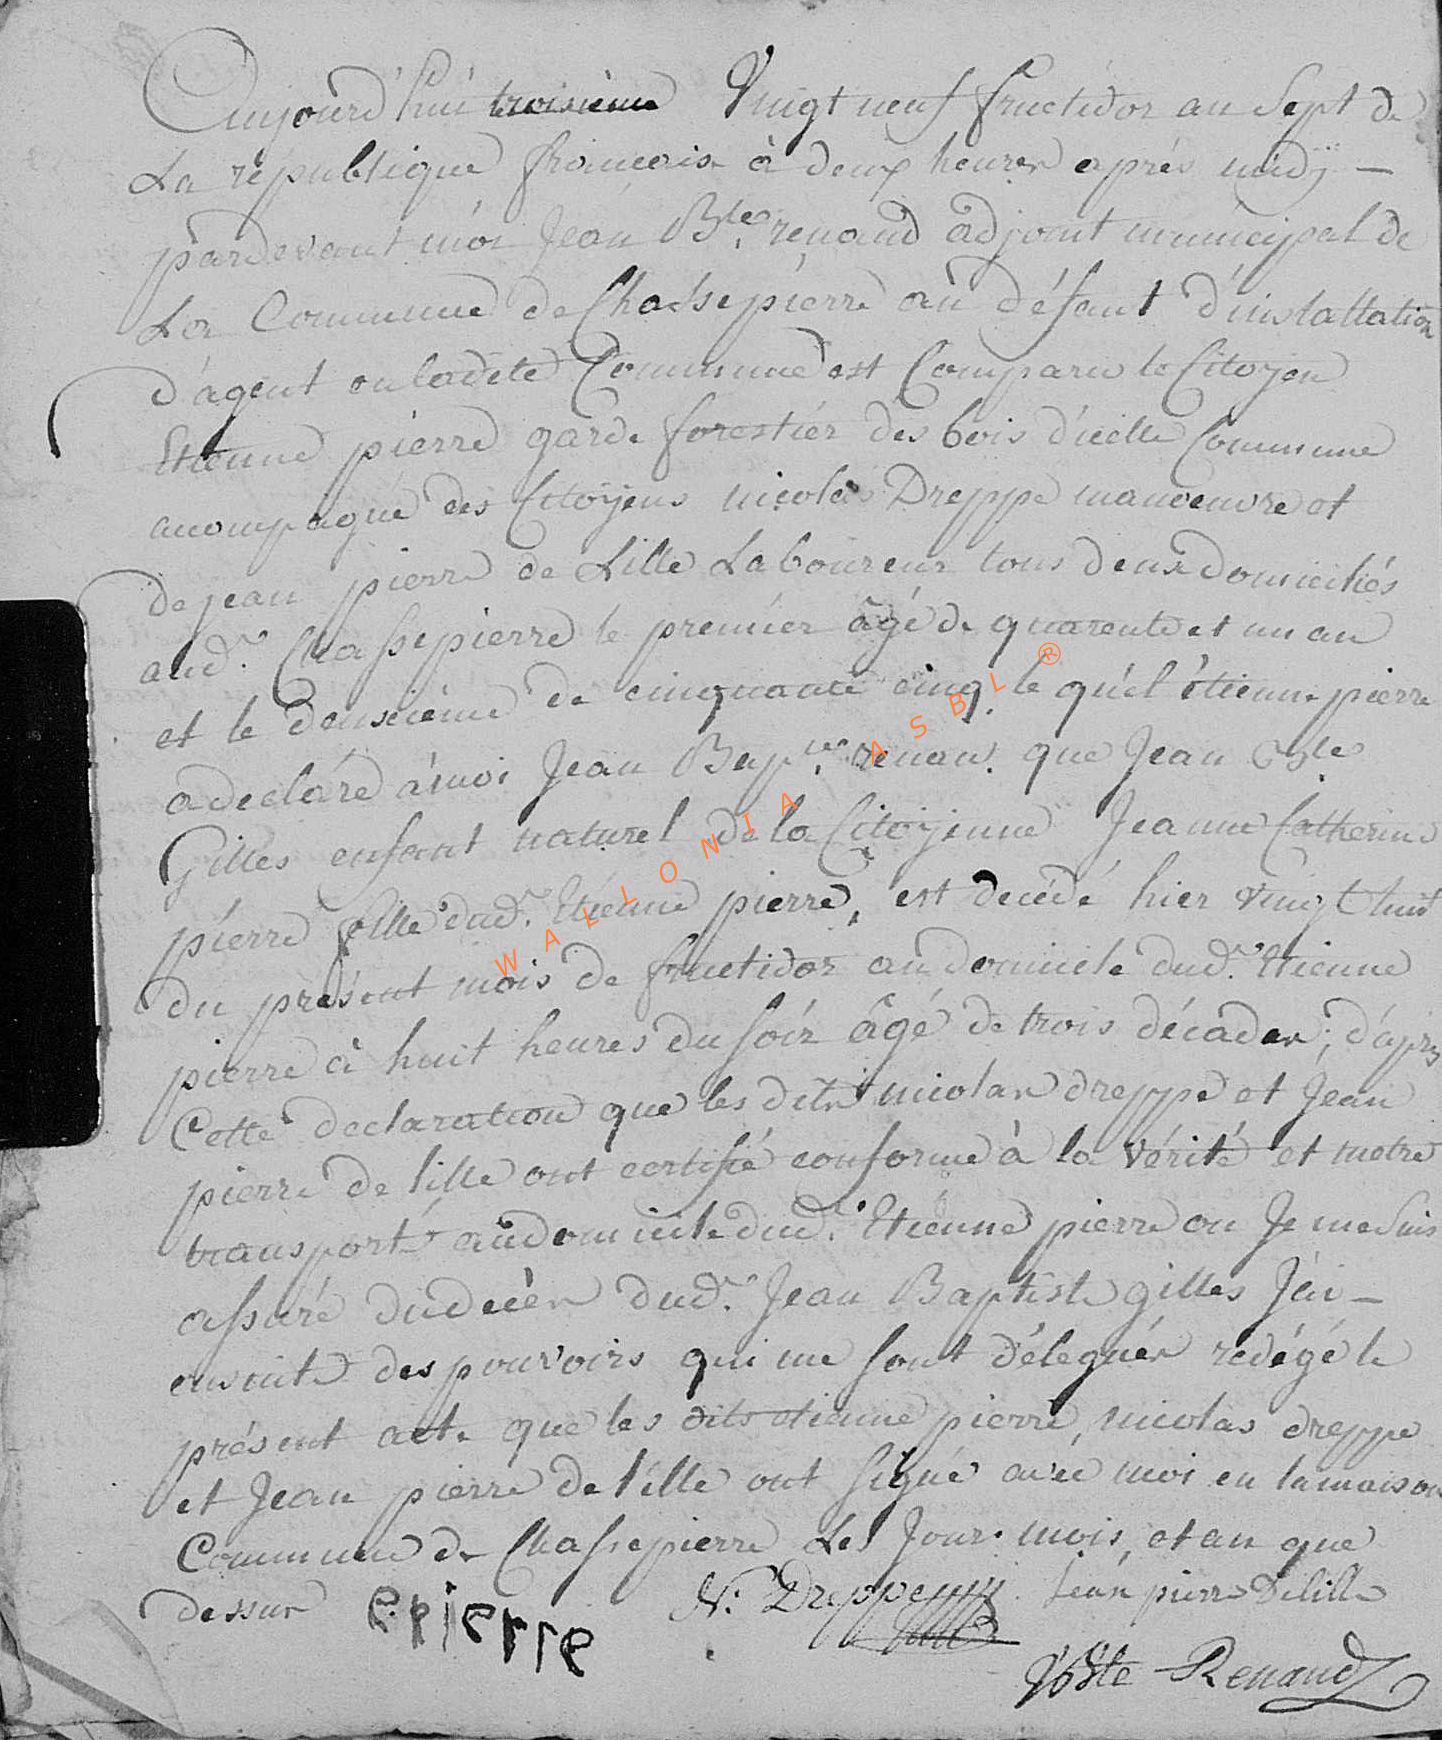 Aujourd'hui troisième Vingt neuf fructidor an Sept de
La république françoise à deux heures après midj —
pardevant moi Jean Bte. renaud adjoint municipal de
La Commune de Chassepierre au défaut d'installation
d'agent en ladite Commune est Comparu le Citoyen
Etienne pierre garde forestiér des bois d'icelle Commune
acompagné des Citoyens nicolas Dreppe manoeuvre et
de jean pierre de Lille Laboureur tous deux domiciliés
aud. Chassepierre le premier âgé de quarente et un an
et le deuxcième de cinquante cinq. le quel étienne pierre
a declaré à moi Jean Bapte. renau. que Jean Bte
Gilles enfant naturel de la Citoyenne Jeanne Catherine
pierre fille dud. Etienne pierre, est decédé hier vingt huit
du présent mois de fructidor au domicile dud. Etienne
pierre à huit heures du soir âgé de trois décades; d'après
Cette declaration que les dits nicolas dreppe et Jean
pierre de lille ont certifié conforme à la vérité et metre
transporté au domicile dud. Etienne pierre ou Je me suis
assuré du décès dud. Jean Baptiste gilles Jai —
ensuite des pouvoirs qui me sont délegués redégé le
présent acte que les dits etienne pierre, nicolas dreppe
et Jean pierre de lille ont signé avec moi en la maison
Commune de Chassepierre Les Jour mois, et an que
dessus epierre N: Dreppe Jean pierre Delille
JBste Renaud
WALLONIA ASBL ®